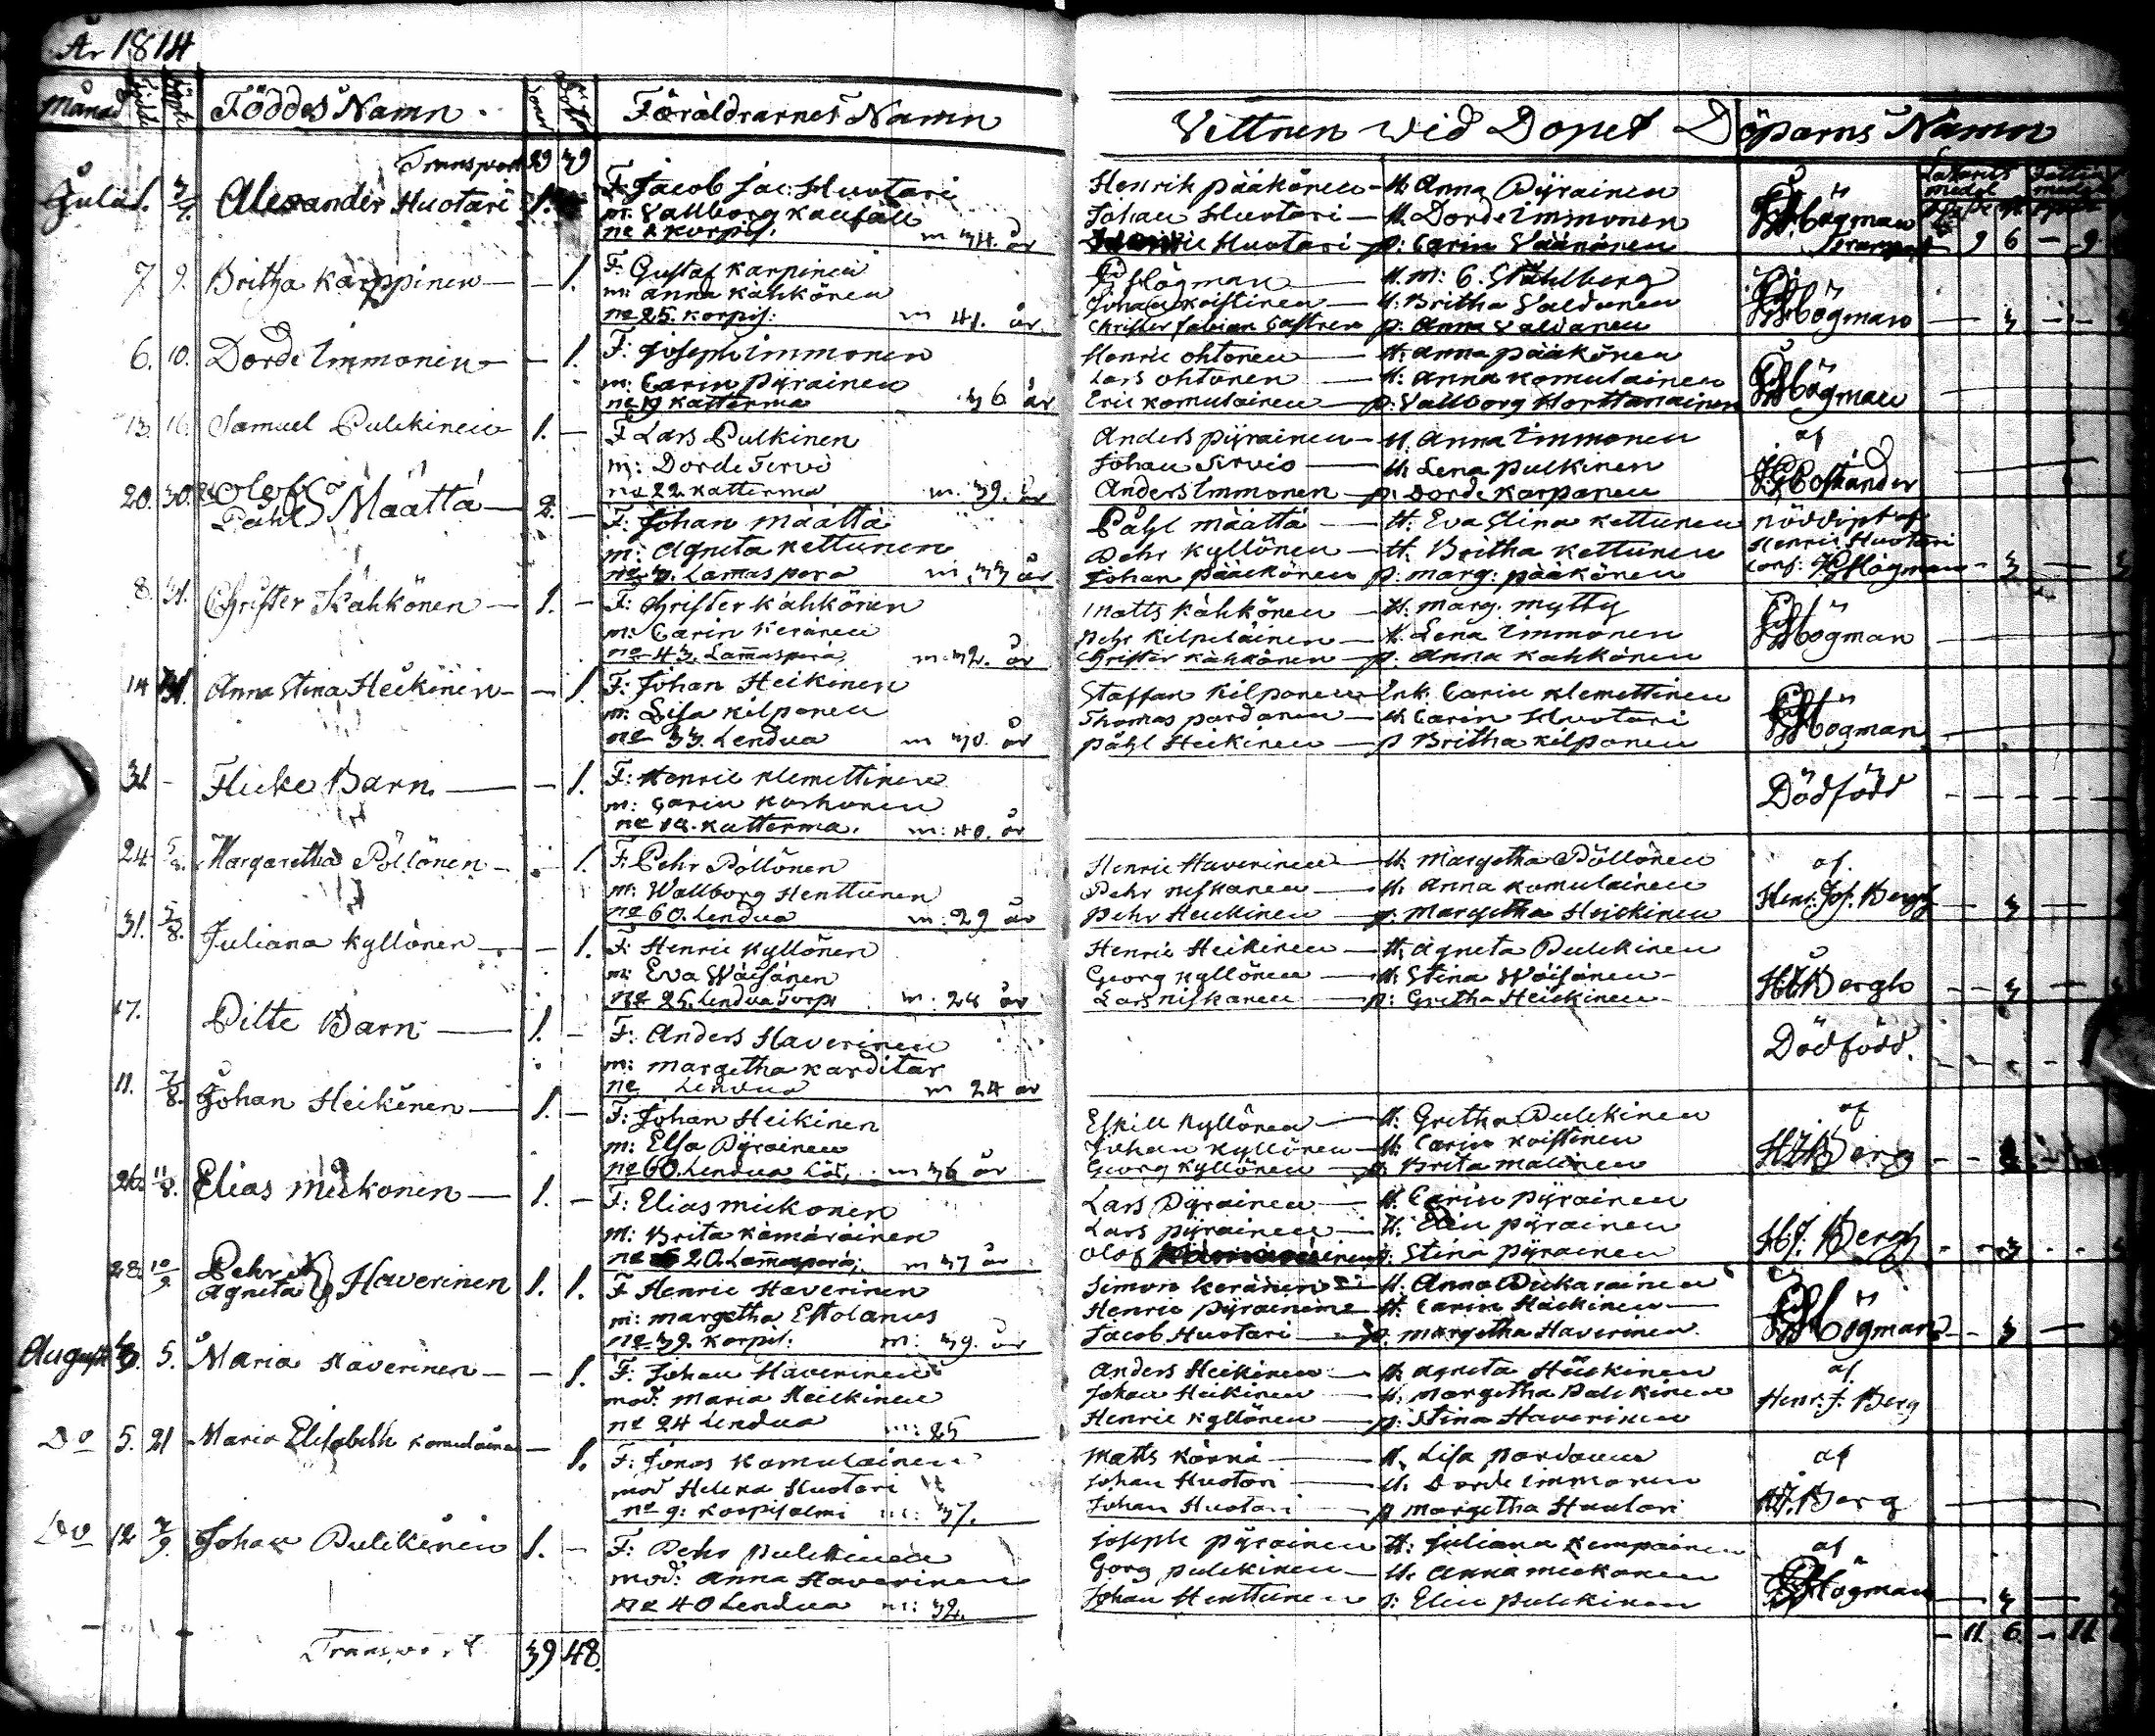 År 1814
Månad Födde Döpte Föddes Namn Söner Döttr. Föräldrarnes Namn
Transport 29 39
Julii 1. 3/7. Alexander Huotari 1.
F: Jacob Jac: Huotari
m: Vallborg Kaufall
no 2 Korpis. m 34. år
7. 9. Britha Karppinen — — 1.
F: Gustaf Karpinen
m: Anna Kähkönen
no 25. Korpis: m 41. år
6. 10. Dorde Immonen — — 1.
F: Joseph Immonen
m: Carin Pyrainen
no 19 Katterma 36 år
13. 16. Samuel Pulckinen 1. —
F Lars Pulkinen
m: Dorde Tervo
no 22 Katterma m. 39. år
20. 30. Olof Påhl Määttä — 2. —
F: Johan Määttä
m: Agneta Kettunen
no 3. Lamaspera m, 33 år
8. 31. Christer Kähkönen — 1. —
F: Christer Kähkönen
m: Carin Keränen
no 43. Lamaspera, m. 32. år
14 31. Anna Stina Heikinen — — 1.
F: Johan Heikinen
m: Lisa Kilponen
no 33. Lendua m 30. år
31 - Flicke Barn — — 1.
F: Henric Klemettinen
m: Carin Korhonen
no 19. Katterma. m: 40. år
24. 5/8. Margaretha Pöllönen — 1.
F: Pehr Pöllönen
m: Wallborg Henttunen
no 60. Lendua m: 29 år
31. 5/8. Juliana Kyllönen — — 1.
F: Henric Kyllönen
m: Eva Wäisänen
no 25. Lendua Torp m: 24 år
17. Pilte Barn — 1. —
F: Anders Haverinen
m: Margetha Karditar
no Lendua m 24 år
11. 7/8. Johan Heikinen — 1. —
F: Johan Heikinen
m: Elsa Pyrainen
no 60. Lendua m 36 år
26. 11/8. Elias Mickonen — 1. —
F: Elias Mickonen
m: Brita Kämäräinen
no 20. Lamaspera, m 37 år
28. 10/9 Pehr Agneta Haverinen 1. 1.
F Henric Haverinen
m: Margetha Estolanus
no 39. Korpis: m: 39. år
August 3. 5. Maria Haverinen — — 1.
F: Johan Haverinen
mod: Maria Heickinen
no 24 Lendua m: 25
Do 5. 21 Maria Elisabeth Komulainen — 1.
F: Jonas Komulainen
mod Helena Huotari
no 9: Korpisalmi m: 37.
Do 12 4/9. Johan Pulckinen 1. —
F: Pehr Pulckinen
mod: Anna Haverinen
no 40 Lendua m: 32.
Transport 39 48.
Vittnen wid Dopet Döparns Namn
Henrik Pääkönen — H. Anna Pyrainen
Johan Huotari — H. Dorde Immonen
Henric Huotari — p: Carin Väänänen
Högman
Transport — 9 6 — 9
Högman — H. m: C. Ståhlberg
Johan Koistinen — H. Britha Valdanen
Christer Fabian Castren p: Anna Valdanen
Högman — 3 — —
Henric Ohtonen — H: Anna Pääkönen
Lars Ohtonen — H: Anna Komulainen
Eric Komulainen — p: Vallborg Horttanainen
Högman
Anders Pyrainen — H. Anna Immonen
Johan Servio — H. Lena Pulkinen
Anders Immonen — p. Dorde Karpanen
af
Påhl Määttä — H. Eva Stina Kettunen
Pehr Kyllönen — H. Britha Kettunen
Johan Pääckönen p: Marg: Pääkönen
Nöddipt af
Henric Huotari
conf: Högman — 3 — 3
Matts Kähkönen — H. Marg. Mytty
Pehr Kilpeläinen — H. Lena Immonen
Christer Kähkönen — p. Anna Kähkönen
Högman —
Staffan Kilponen — Enk. Carin Klemettinen
Thomas Pardanen — H Carin Huotari
Påhl Heikinen — p Britha Kilponen
Högman —
Dödfödd
Henric Haverinen — H. Margetha Pöllönen
Pehr Niskanen — H. Anna Komulainen
Pehr Heickinen — p. Margetha Heickinen
af.
Henr: Jos. Bergh — 3 —
Henric Heikinen — H. Agneta Pulckinen
Georg Kyllönen — H. Stina Wäisänen —
Lars Niskanen — p: Gretha Heickinen —
HJBergh — — 3 —
Dödfödd.
Eskill Kyllönen — H: Gretha Pulckinen
Johan Kyllönen — H: Carin Koistinen
Georg Kyllönen — p. Brita Malinen
af
HJBerg
Lars Pyrainen — H. Carin Pyrainen
Lars Pyrainen — H: Elin Pyrainen
Olof p. Stina Pyrainen
HJ. Bergh — 3
Simon Keränen — H. Anna Pickarainen
Henric Pyrainen — H. Carin Häckinen —
Jacob Huotari — p. Margetha Haverinen.
Högman — 3 —
Anders Heikinen — H. Agneta Häickinen
Johan Heikinen — H. Margetha Pulckinen
Henric Kyllönen — p: Stina Haverinen
af
Henr: J. Berg
Matts Körnä — H. Lisa Pardanen
Johan Huotari — H. Dorde Immonen
Johan Huotari — p Margetha Huotari
af
HJ.Berg
Joseph Pyrainen H: Juliana Kempainen
Gorg Pulckinen — H. Anna Mickonen
Johan Henttunen p: Elin Pulckinen
af
Högman — 3 —
— 11. 6. — 11